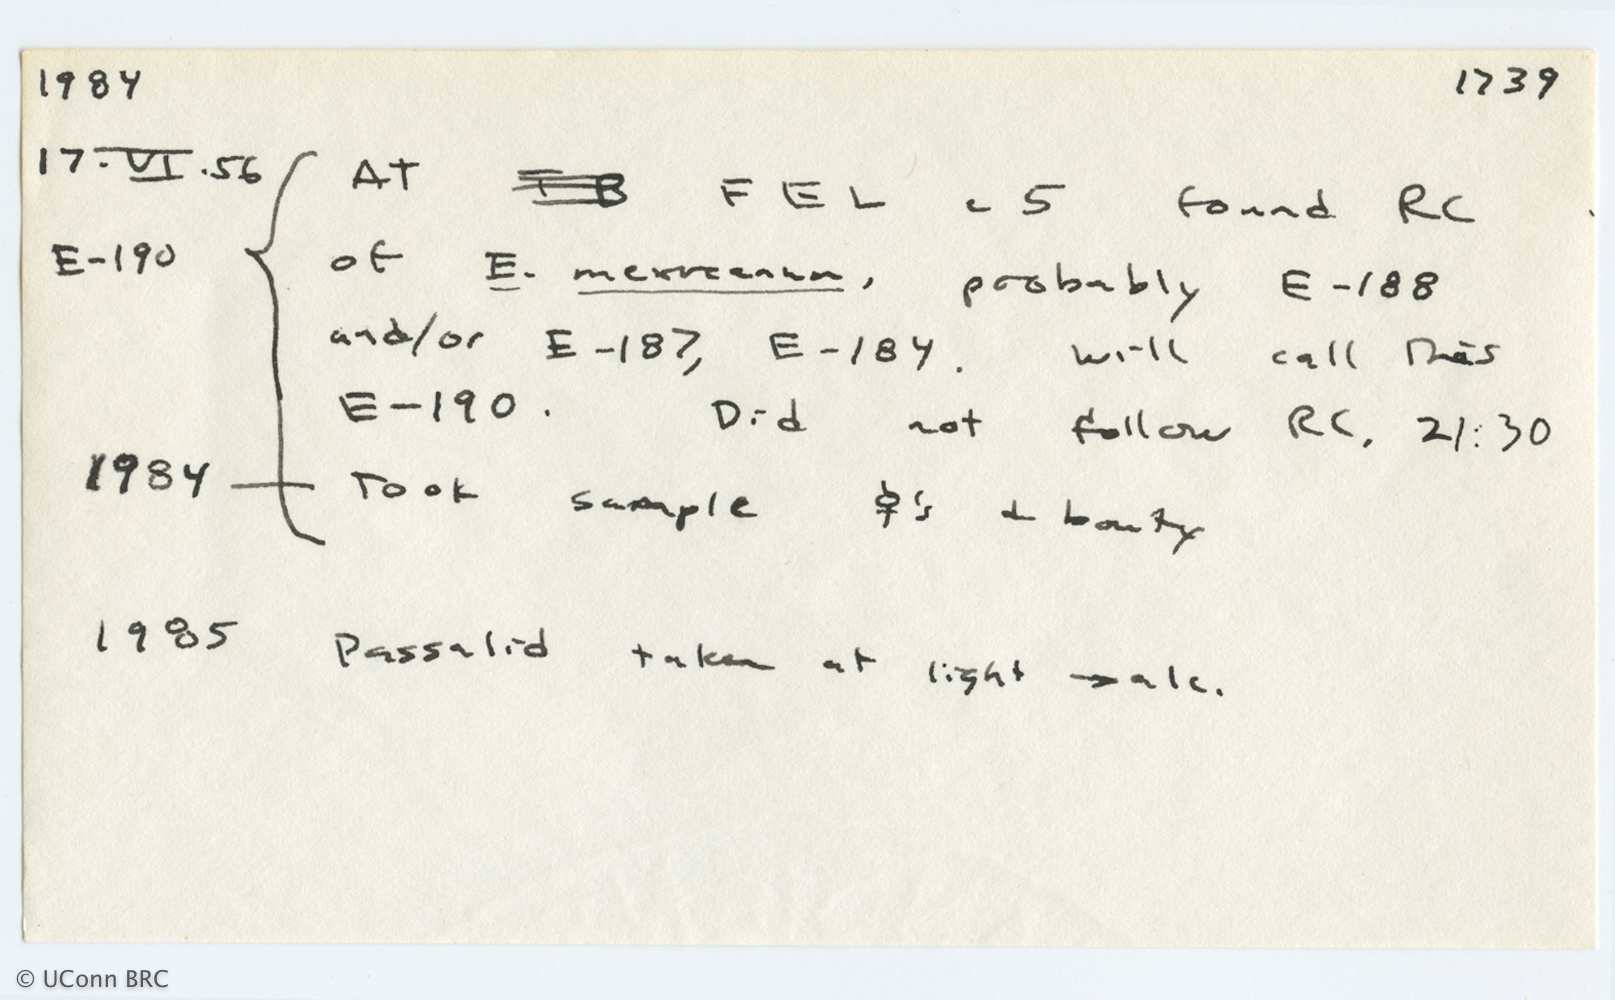 1984 1739
17.VI.56 At FEL c 5 found RC
E-190 of E. mexicanum, probably E-188
and/or E-187, E-184. will call this
E-190. Did not follow RC, 21:30
1984 Took sample ☿'s + bouty
1985 Passalid taken at light → alc.
© UConn BRC